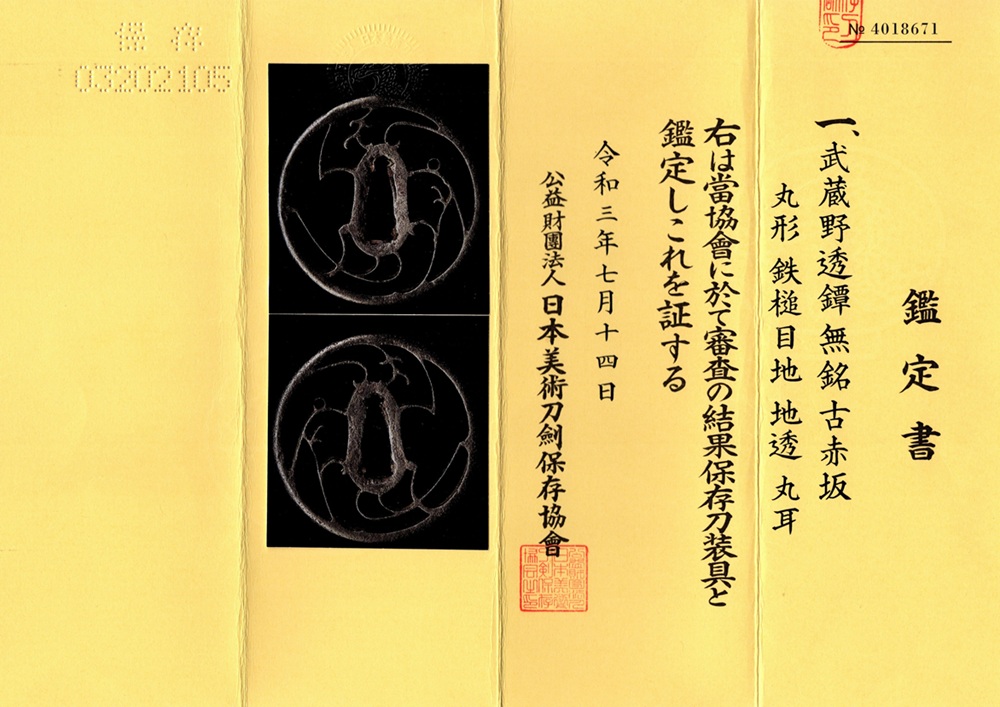 № 4018671
鑑定書
一、武蔵野透鐔無銘古赤坂
丸形 鉄槌目地 地透 丸耳
右は當協會に於て審査の結果保存刀装具と
鑑定しこれを証する
令和三年七月十四日
公益財團法人 日本美術刀劍保存協會
保存
03202105